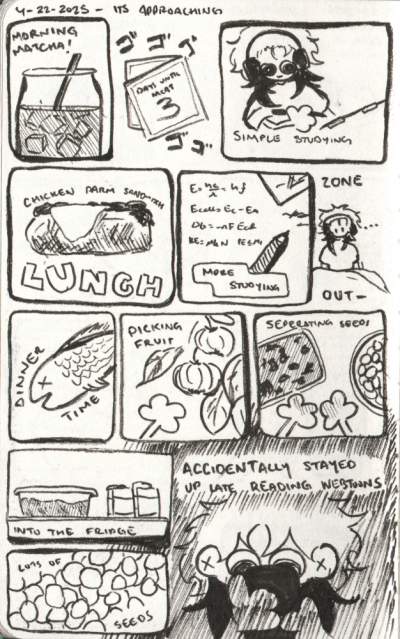 4-22-2025 - ITS APPROACHING
MORNING
MATCHA!
ゴゴゴ
DAYS UNTIL
MCAT
3
ゴゴ
SIMPLE STUDYING
CHICKEN PARM SANDWICH
LUNCH
E=hc/λ=hf
MORE
STUDYING
ZONE
OUT-
DINNER
TIME
PICKING
FRUIT
SEPERATING SEEDS
INTO THE FRIDGE
LOTS OF
SEEDS
ACCIDENTALLY STAYED
UP LATE READING WEBTOONS